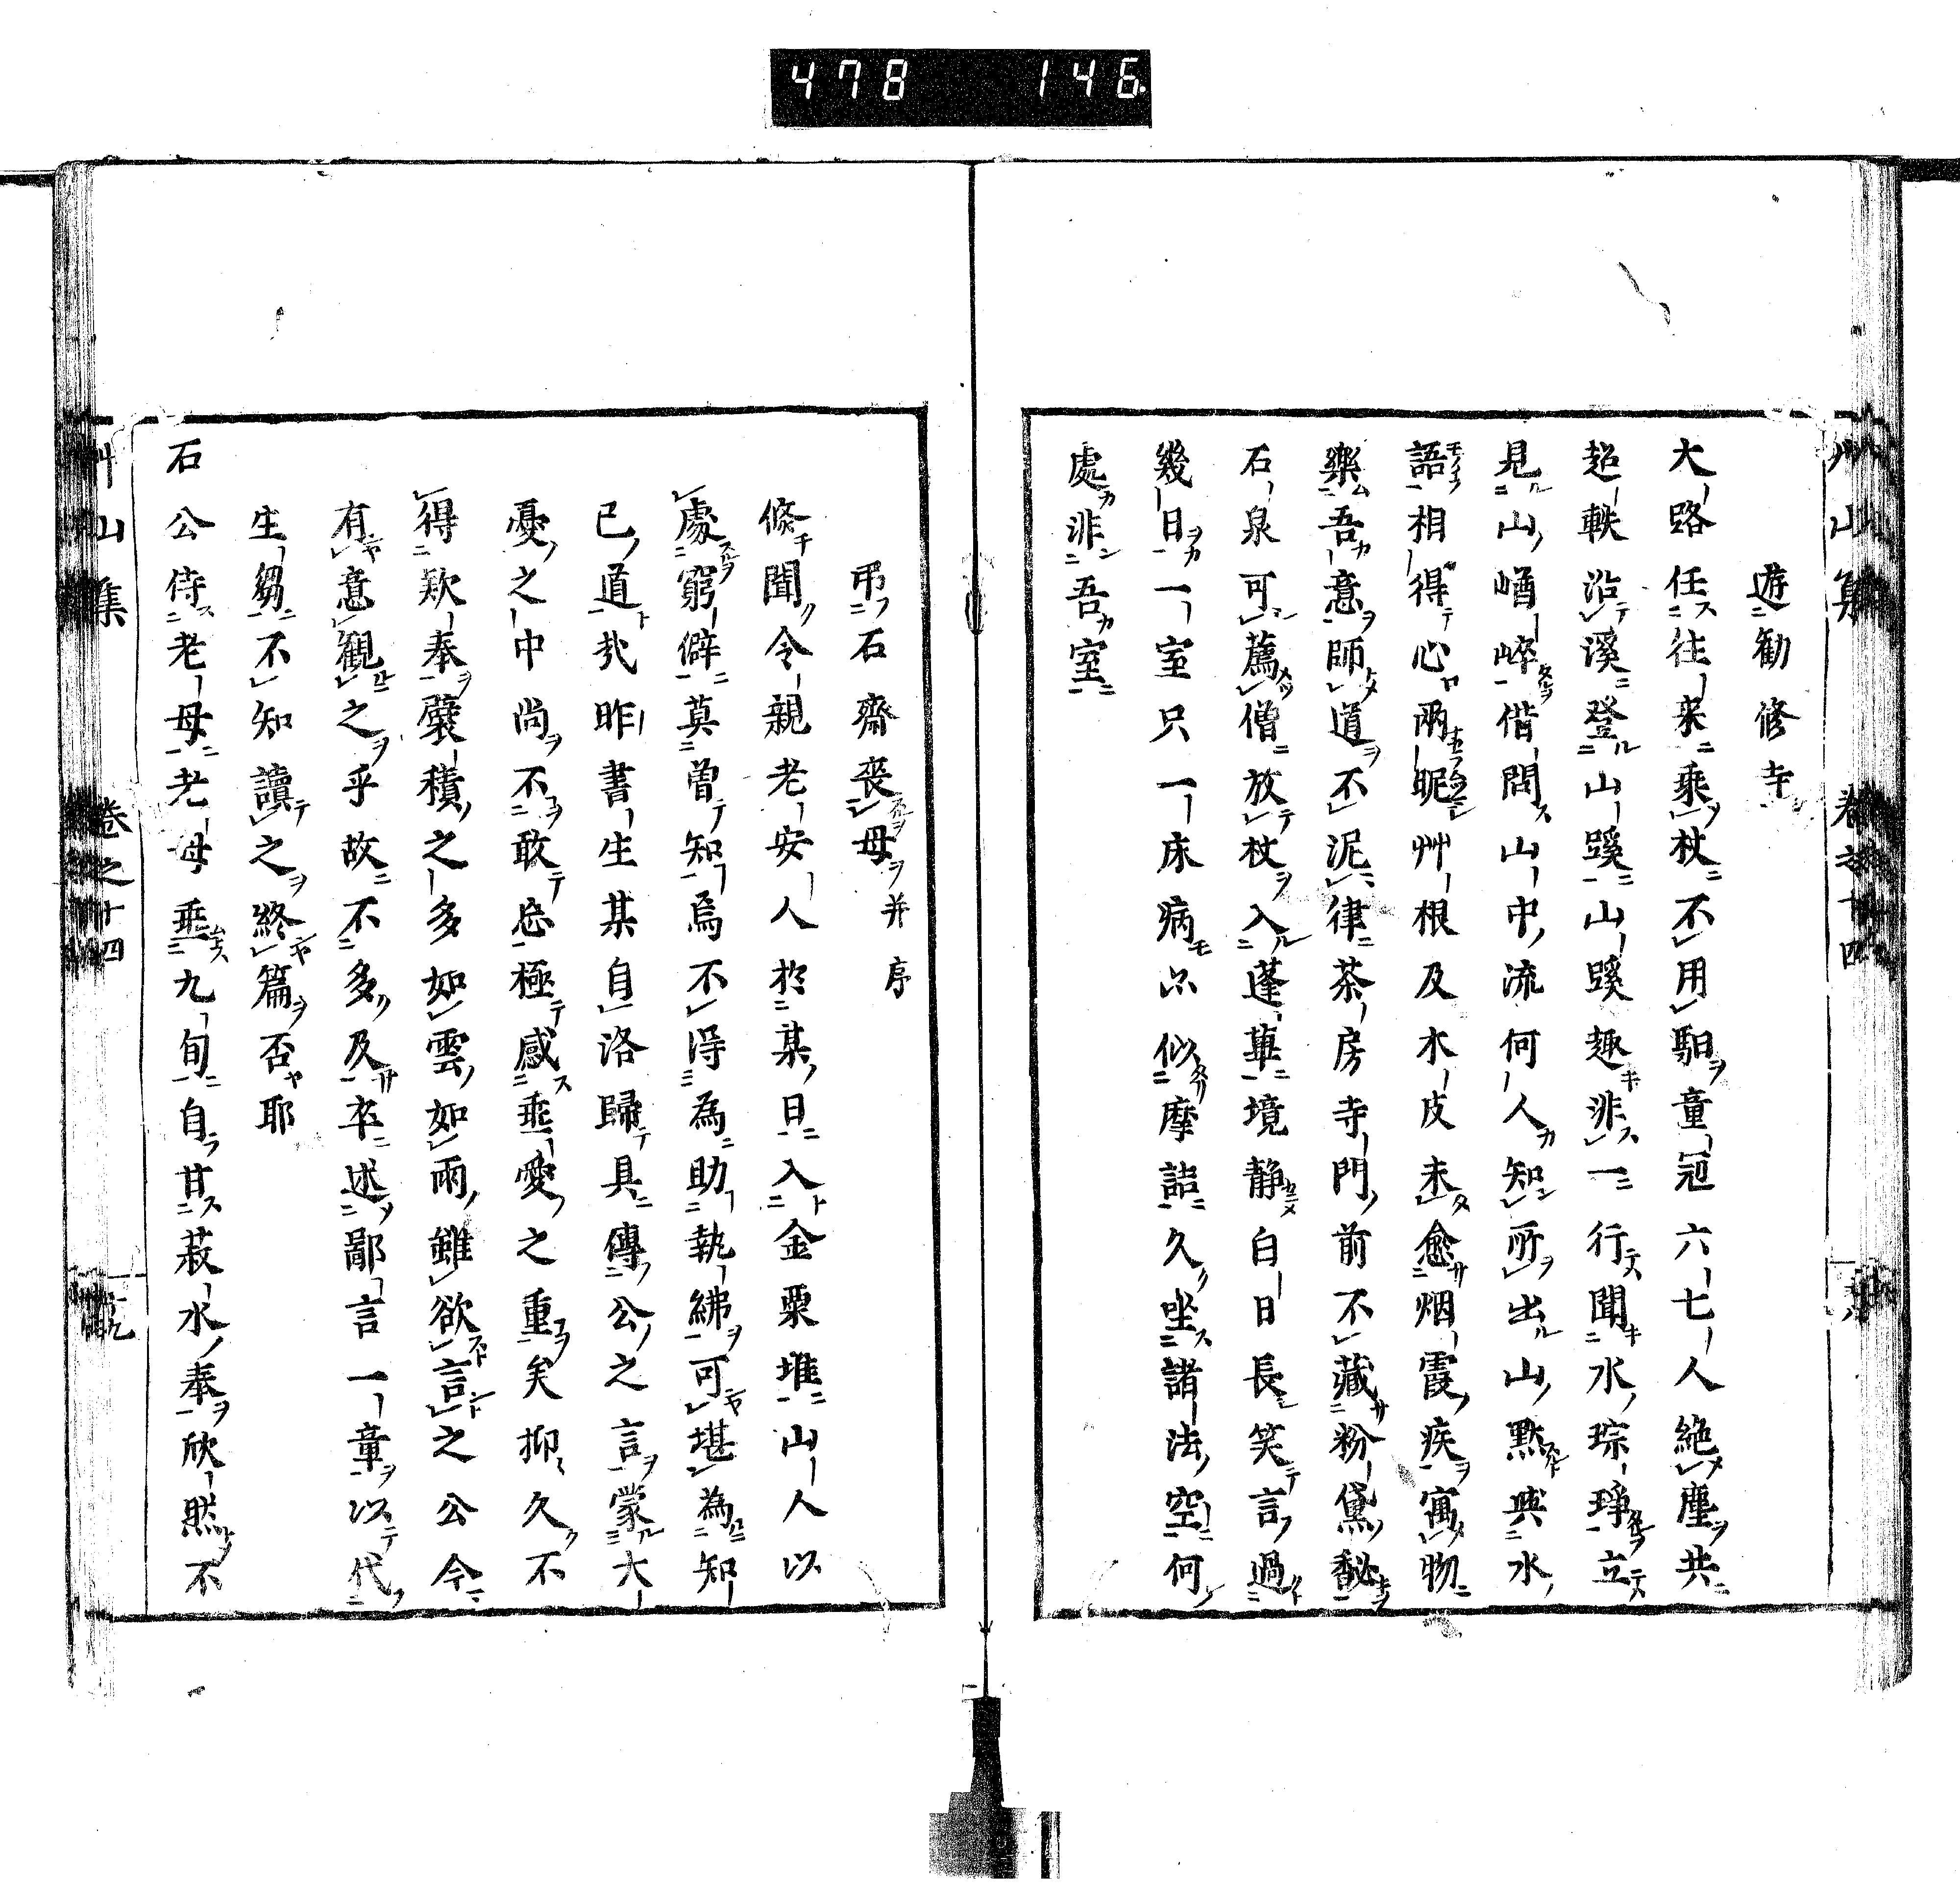 478 146
遊勧修寺
大路任往来乗杖不用馹童冠六七人絶塵共
超軼沿溪登山蹊山蹊趣非一行聞水琮琤立
見山崷崪偕問山中流何人知所出山黙與水
語相得心兩昵艸根及木皮未愈烟霞疾寓物
樂吾意師道不泥律茶房寺門前不藏粉黛馝
石泉可薦僧放杖入蓬蓽境静白日長笑言過
幾日一室只一床病亦似摩詰久坐諸法空何
處非吾室
艸山集 卷之十四
弔石齋喪母并序
倏聞令親老安人於某日入金粟堆山人以
處窮僻莫曽知焉不得為助執紼可堪為知
已道哉昨書生某自洛歸具傳公之言蒙大
憂之中尚不敢忘極感垂愛之重矣抑久不
得欵奉襞積之多如雲如雨雖欲言之公今
有意観之乎故不多及卒述鄙言一章以代
生芻不知讀之終篇否耶
石公侍老母老母垂九旬自甘菽水奉欣然不
艸山集 卷之十四 十九